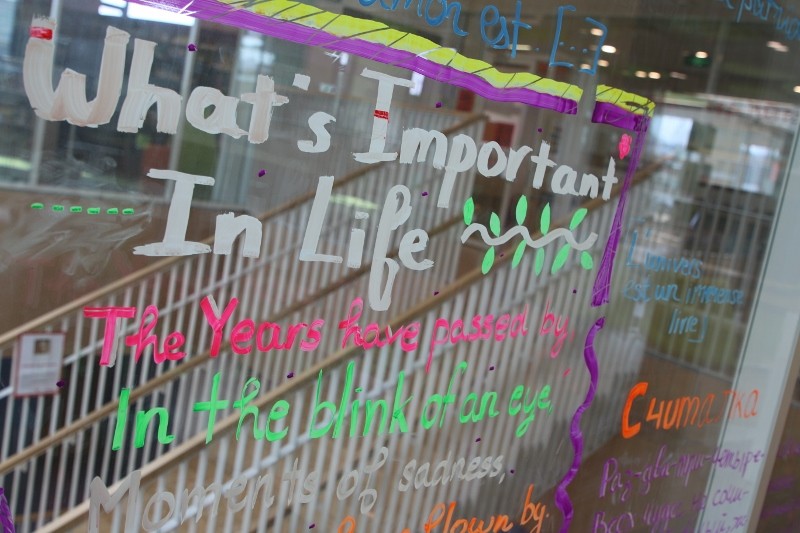 mon est [...]
What's Important
In Life
The Years have passed by,
In the blink of an eye,
Moments of sadness,
flown by.
L'univers
est un immense
livre]
Считалка
Раз-два-три-четыре-